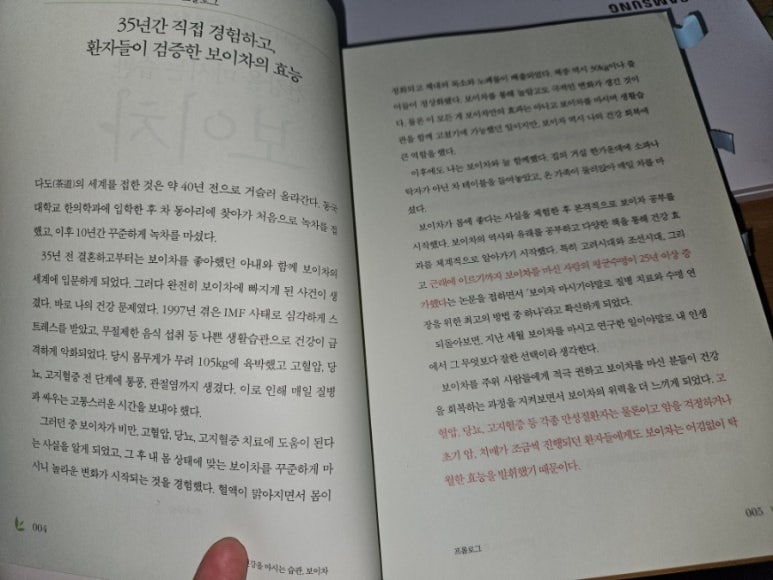 프롤로그
35년간 직접 경험하고,
환자들이 검증한 보이차의 효능
다도(茶道)의 세계를 접한 것은 약 40년 전으로 거슬러 올라간다. 동국
대학교 한의학과에 입학한 후 차 동아리에 찾아가 처음으로 녹차를 접
했고, 이후 10년간 꾸준하게 녹차를 마셨다.
35년 전 결혼하고부터는 보이차를 좋아했던 아내와 함께 보이차의
세계에 입문하게 되었다. 그러다 완전히 보이차에 빠지게 된 사건이 생
겼다. 바로 나의 건강 문제였다. 1997년 겪은 IMF 사태로 심각하게 스
트레스를 받았고, 무절제한 음식 섭취 등 나쁜 생활습관으로 건강이 급
격하게 악화되었다. 당시 몸무게가 무려 105kg에 육박했고 고혈압, 당
뇨, 고지혈증 전 단계에 통풍, 관절염까지 생겼다. 이로 인해 매일 질병
과 싸우는 고통스러운 시간을 보내야 했다.
그러던 중 보이차가 비만, 고혈압, 당뇨, 고지혈증 치료에 도움이 된다
는 사실을 알게 되었고, 그 후 내 몸 상태에 맞는 보이차를 꾸준하게 마
시니 놀라운 변화가 시작되는 것을 경험했다. 혈액이 맑아지면서 몸이
004
건강을 마시는 습관, 보이차
SAMSUNG
정화되고 체내의 독소와 노폐물이 배출되었다. 체중 역시 30kg이나 줄
어들어 정상화됐다. 보이차를 통해 놀랍고도 극적인 변화가 생긴 것이
다. 물론 이 모든 게 보이차만의 효과는 아니고 보이차를 마시며 생활습
관을 함께 고쳤기에 가능했던 일이지만, 보이차 역시 나의 건강 회복에
큰 역할을 했다.
이후에도 나는 보이차와 늘 함께했다. 집의 거실 한가운데에 소파나
탁자가 아닌 차 테이블을 들여놓았고, 온 가족이 둘러앉아 매일 차를 마
셨다.
보이차가 몸에 좋다는 사실을 체험한 후 본격적으로 보이차 공부를
시작했다. 보이차의 역사와 유래를 공부하고 다양한 책을 통해 건강 효
과를 체계적으로 알아가기 시작했다. 특히 고려시대와 조선시대, 그리
고 근대에 이르기까지 보이차를 마신 사람의 평균수명이 25년 이상 증
가했다는 논문을 접하면서 '보이차 마시기야말로 질병 치료와 수명 연
장을 위한 최고의 방법 중 하나'라고 확신하게 되었다.
되돌아보면, 지난 세월 보이차를 마시고 연구한 일이야말로 내 인생
에서 그 무엇보다 잘한 선택이라 생각한다.
보이차를 주위 사람들에게 적극 권하고 보이차를 마신 분들이 건강
을 회복하는 과정을 지켜보면서 보이차의 위력을 더 느끼게 되었다. 고
혈압, 당뇨, 고지혈증 등 각종 만성질환자는 물론이고 암을 걱정하거나
초기 암, 치매가 조금씩 진행되던 환자들에게도 보이차는 어김없이 탁
월한 효능을 발휘했기 때문이다.
프롤로그
005